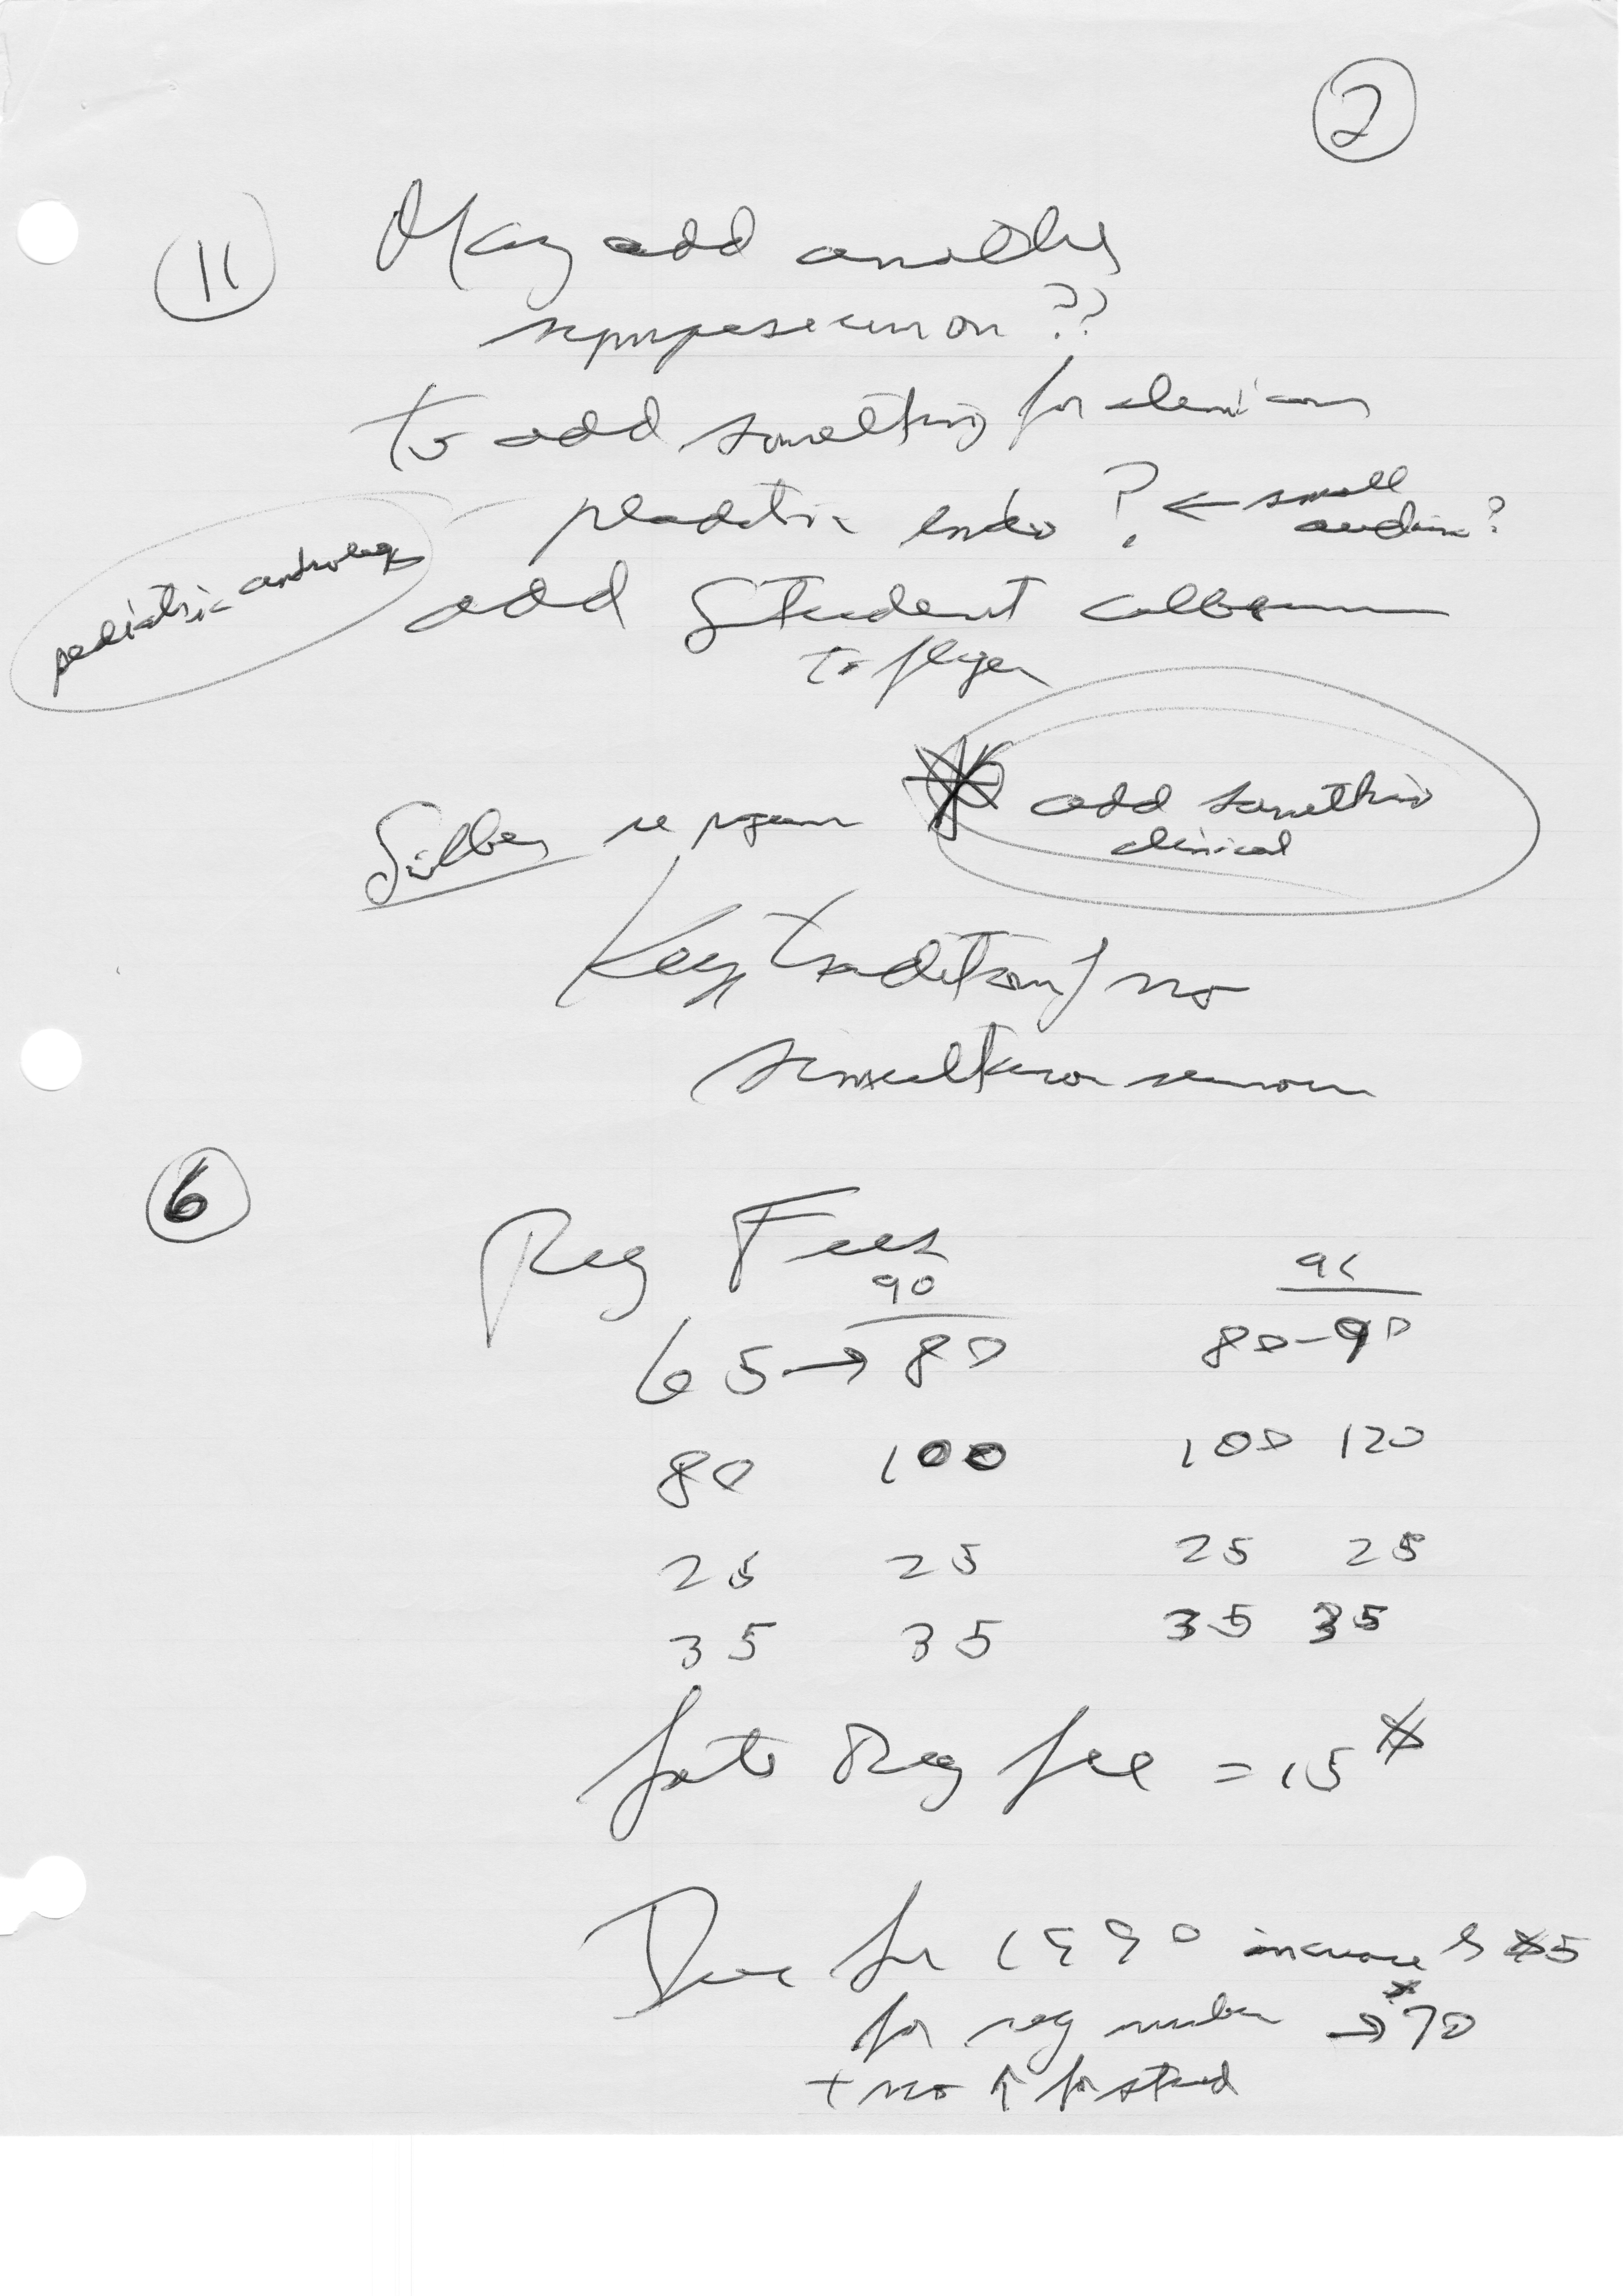 2
11 May add another
symposium on ??
to add something for clinicians
pediatric endo ? ← small
audience ?
pediatric andrology
add Student
to flyer
Silber re program * add something
clinical
Keep tradition / no
simultaneous
6
Reg Fees
90 91
65 → 80 80-90
80 100 100 120
25 25 25 25
35 35 35 35
late Reg fee = 15 $
Dues for 1990 increase $5
for reg member → $70
+ no ↑ for stud